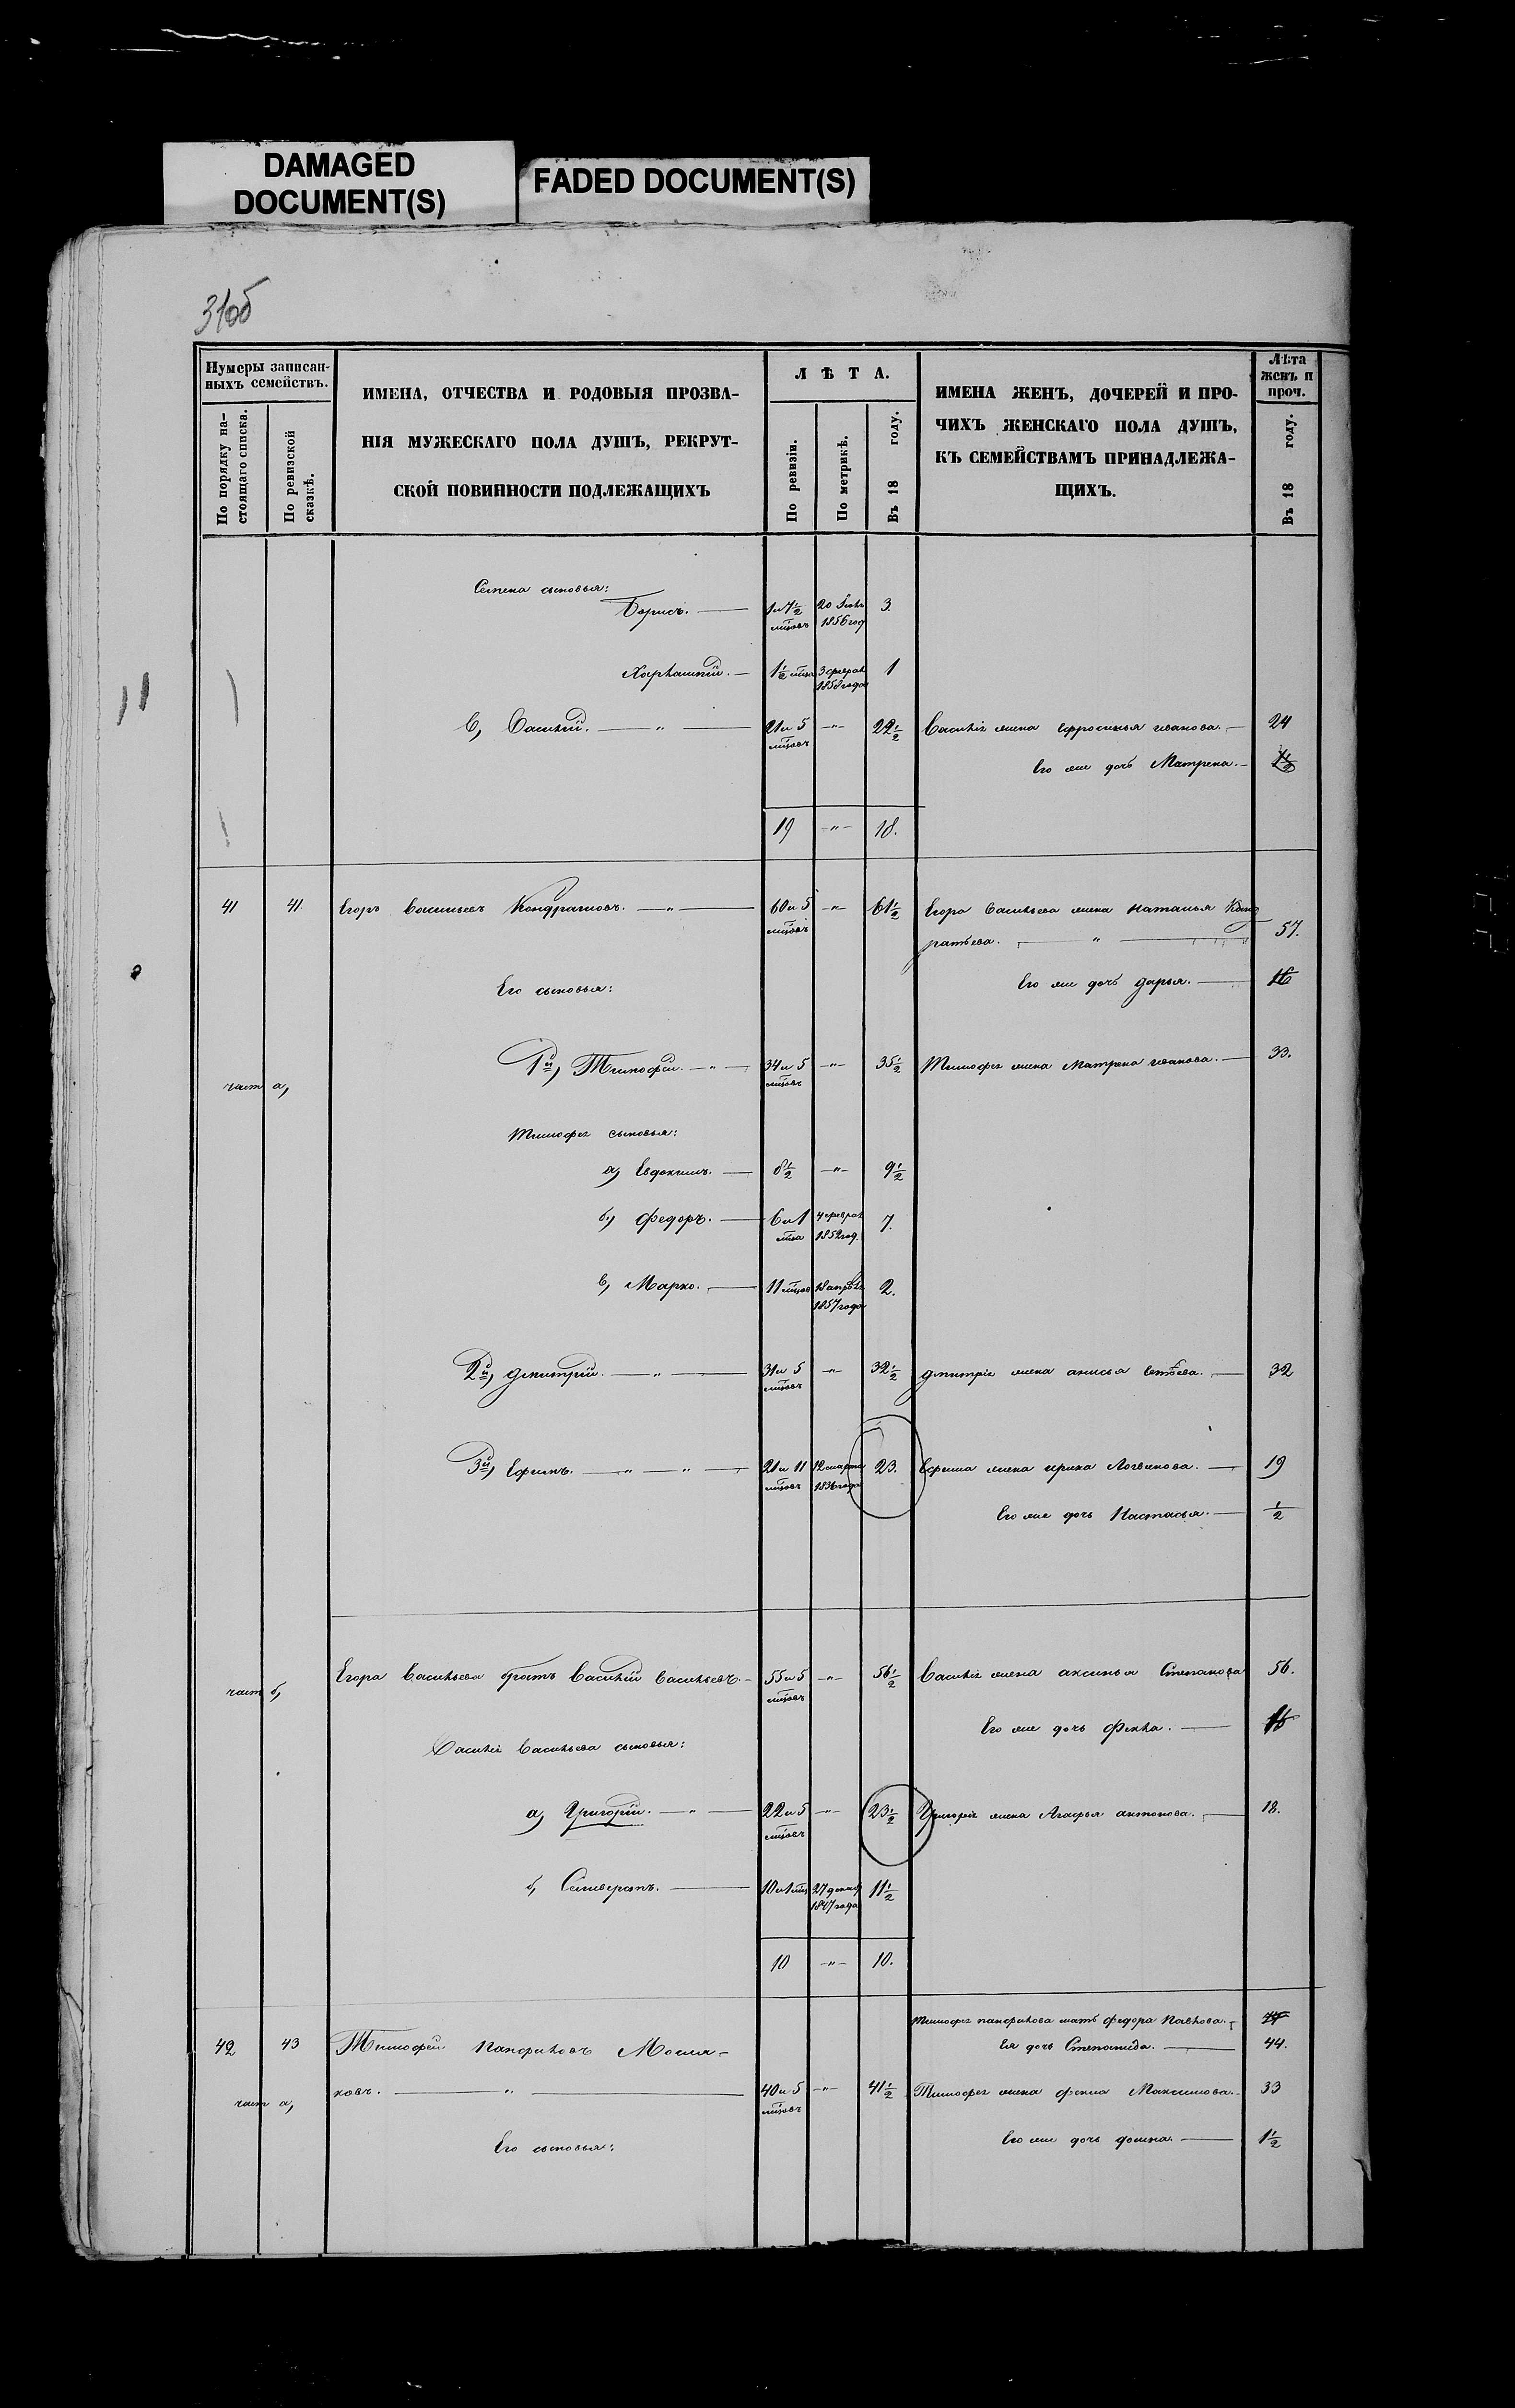 DAMAGED
DOCUMENT(S)
FADED DOCUMENT(S)
31об
Нумеры записан-
ныхъ семействъ.
По порядку на-
стоящаго списка.
По ревизской
сказкѣ.
ИМЕНА, ОТЧЕСТВА И РОДОВЫЯ ПРОЗВА-
НІЯ МУЖЕСКАГО ПОЛА ДУШЪ, РЕКРУТ-
СКОЙ ПОВИННОСТИ ПОДЛЕЖАЩИХЪ
ЛѢТА.
По ревизіи.
По метрикѣ.
Въ 18 году.
ИМЕНА ЖЕНЪ, ДОЧЕРЕЙ И ПРО-
ЧИХЪ ЖЕНСКАГО ПОЛА ДУШЪ,
КЪ СЕМЕЙСТВАМЪ ПРИНАДЛЕЖА-
ЩИХЪ.
Лѣта
женъ и
проч.
Въ 18 году.
Семена сыновья:
Борисъ. 20 1856 год 3.
Харлампій. 1½ 3 феврал 1858 года 1
в, Василій. — „ — 21 и 5 мцовъ —„— 22½ Василія жена Ефросинья иванова. — 24
Его же дочь Матрена. —
19 —„— 18.
41 41 Егоръ Васильевъ Кондрашовъ. — „ — 60 и 5 мцовъ —„— 61½ Егора Васильева жена наталья Конд
ратьева. — „ — 57.
Его сыновья: Его же дочь дарья. — 16
част а, 1й, Тимофей. — „ — 34 и 5 мцовъ —„— 35½ Тимофея жена Матрена иванова. — 33.
Тимофея сыновья:
а, Евдокимъ. — 8½ —„— 9½
б, федоръ. — 6 и 1 мца 4 феврал 1852 год. 7.
в, Марко. — 11 мцов 18 апрѣля 1857 года 2.
2й, дмитрій. — „ — 31 и 5 мцовъ —„— 32½ дмитрія жена анисья — 32
3й, Ефимъ. — „ — „ — 21 и 11 мцовъ 12 марта 1836 года 23. Ефима жена ирина Логвинова. — 19
Его же дочь Настасья. — ½
част б, Егора Васильева братъ Василій Васильевъ. — 55 и 5 мцовъ —„— 56½ Василія жена аксинья Степанова 56.
Его же дочь Фекла. — 16
Василія Васильева сыновья:
а, Григорій. — „ — 22 и 5 мцовъ —„— 23½ Григорія жена Агафья антонова. — 18.
б, Селиверстъ. — 10 и 1 мц 27 декаб 1847 года 11½
10 —„— 10.
Тимофея панфилова мать федора Павлова.
42 43 Тимофей Панфиловъ Ея дочь Степанида. — 44.
част а, ковъ. — „ — 40 и 5 мцовъ —„— 41½ Тимофея жена фекла Максимова. — 33
Его сыновья: Его же дочь домна. — 1½